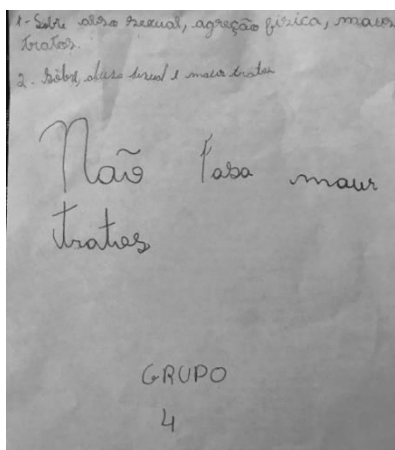 1- Sobre abso sexual, agreção física, maus
tratos.
2. Sobre, abuso sexual e maus tratos
Não fasa maus
tratos
GRUPO
4